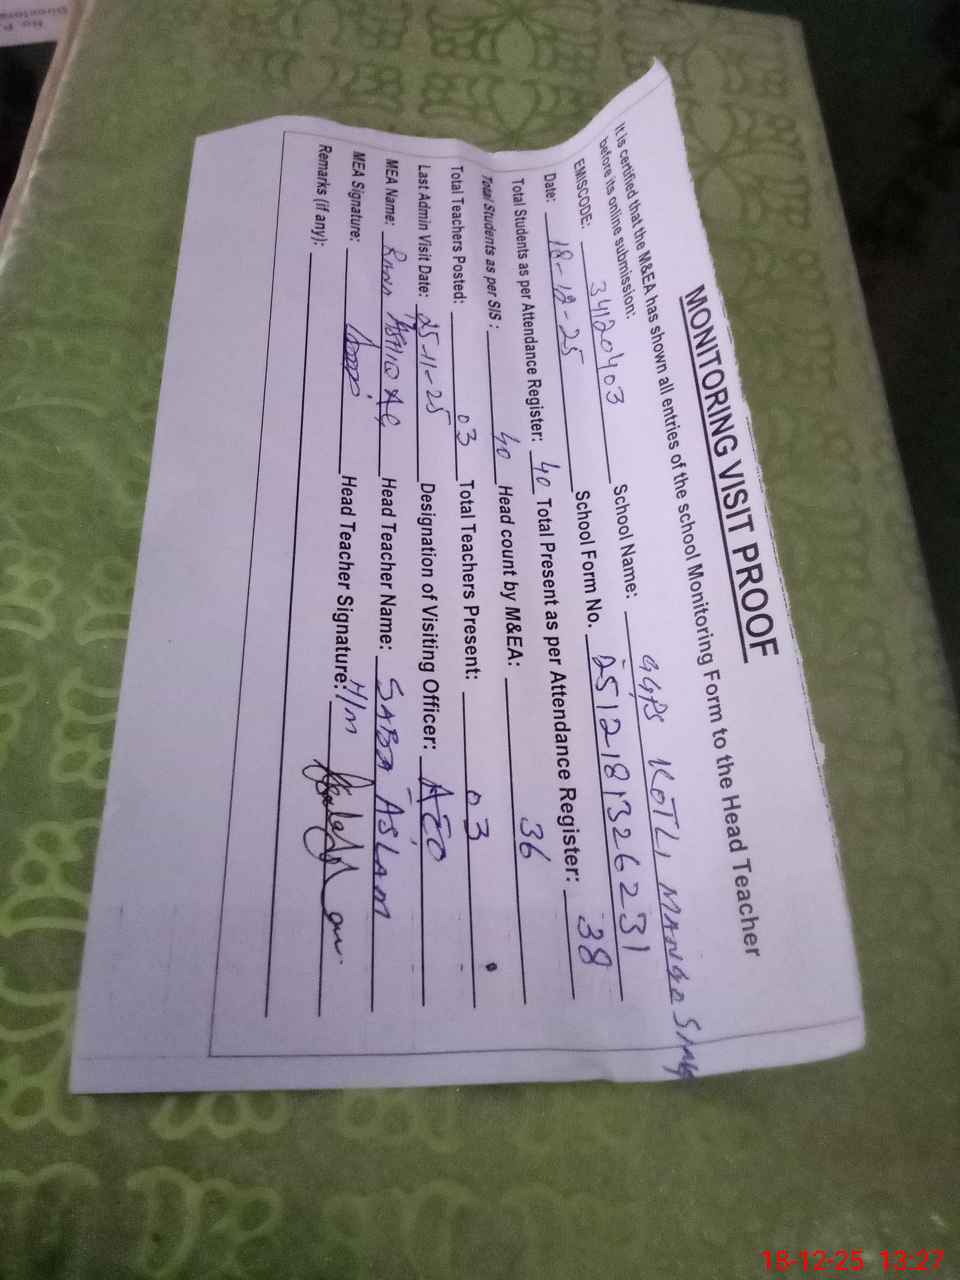 MONITORING VISIT PROOF
It is certified that the M&EA has shown all entries of the school Monitoring Form to the Head Teacher
before its online submission:
EMISCODE: 34120403 School Name: GGPS KOTLI MANGO SING
Date: 18-12-25 School Form No. 2512181326231
Total Students as per Attendance Register: 40 Total Present as per Attendance Register: 38
Total Students as per SIS: 40 Head count by M&EA: 36
Total Teachers Posted: 03 Total Teachers Present: 03
Last Admin Visit Date: 25-11-25 Designation of Visiting Officer: AEO
MEA Name: Head Teacher Name: SABA ASLAM
MEA Signature: Head Teacher Signature: H/m
Remarks (if any):
18-12-25 13:27